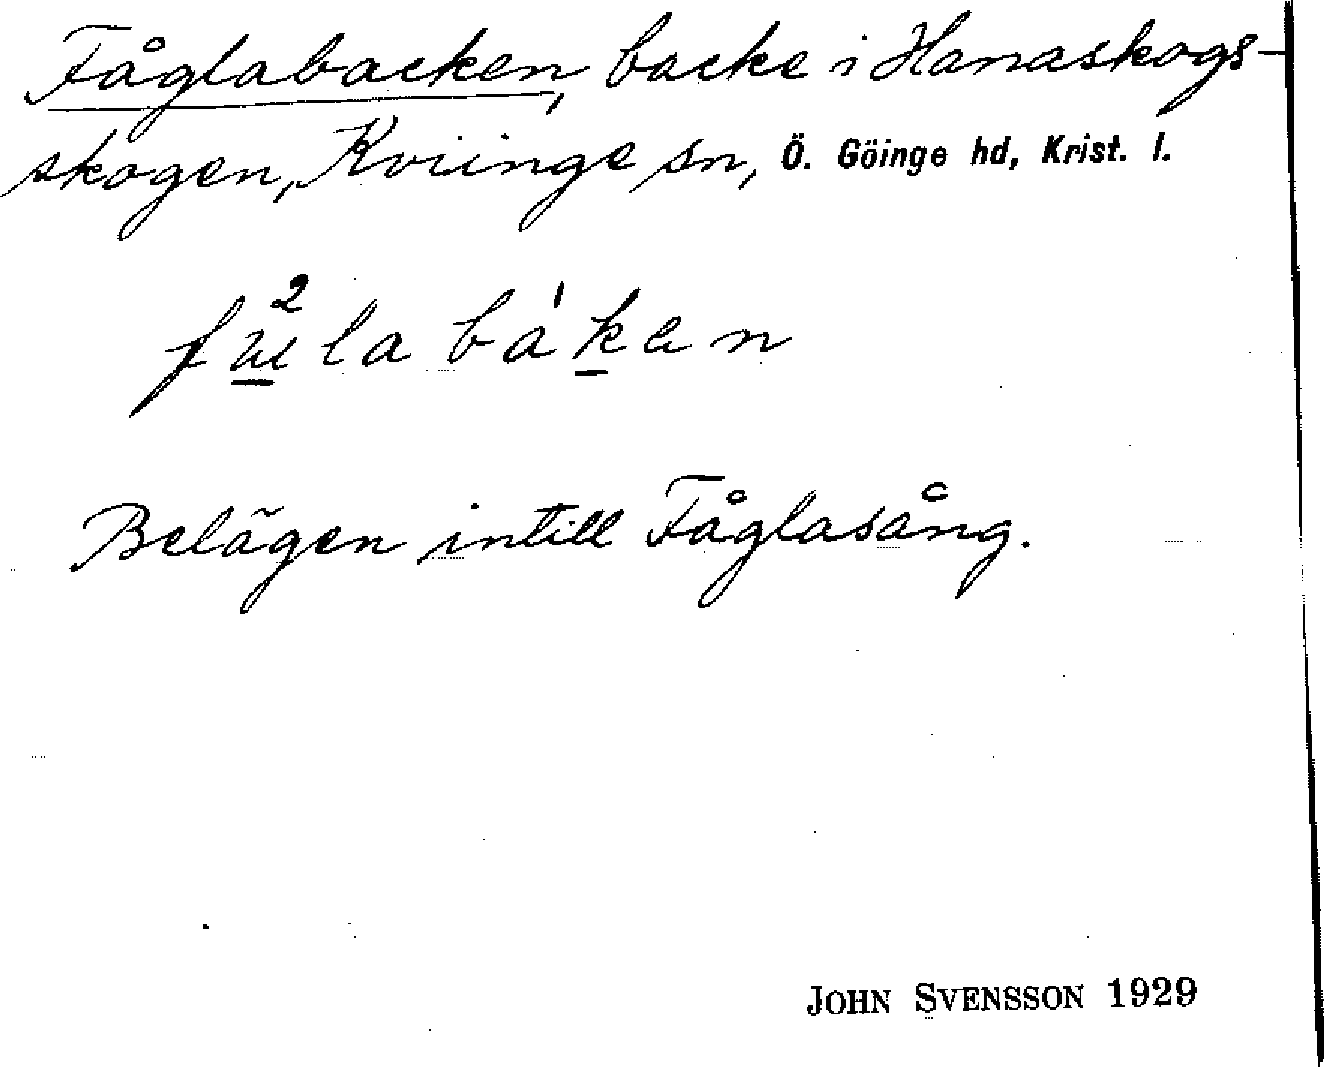 Fåglabacken, backe i Hanaskogs-
skogen, Kviinge sn, Ö. Göinge hd, Krist. l.
Belägen intill Fåglasång.
JOHN SVENSSON 1929